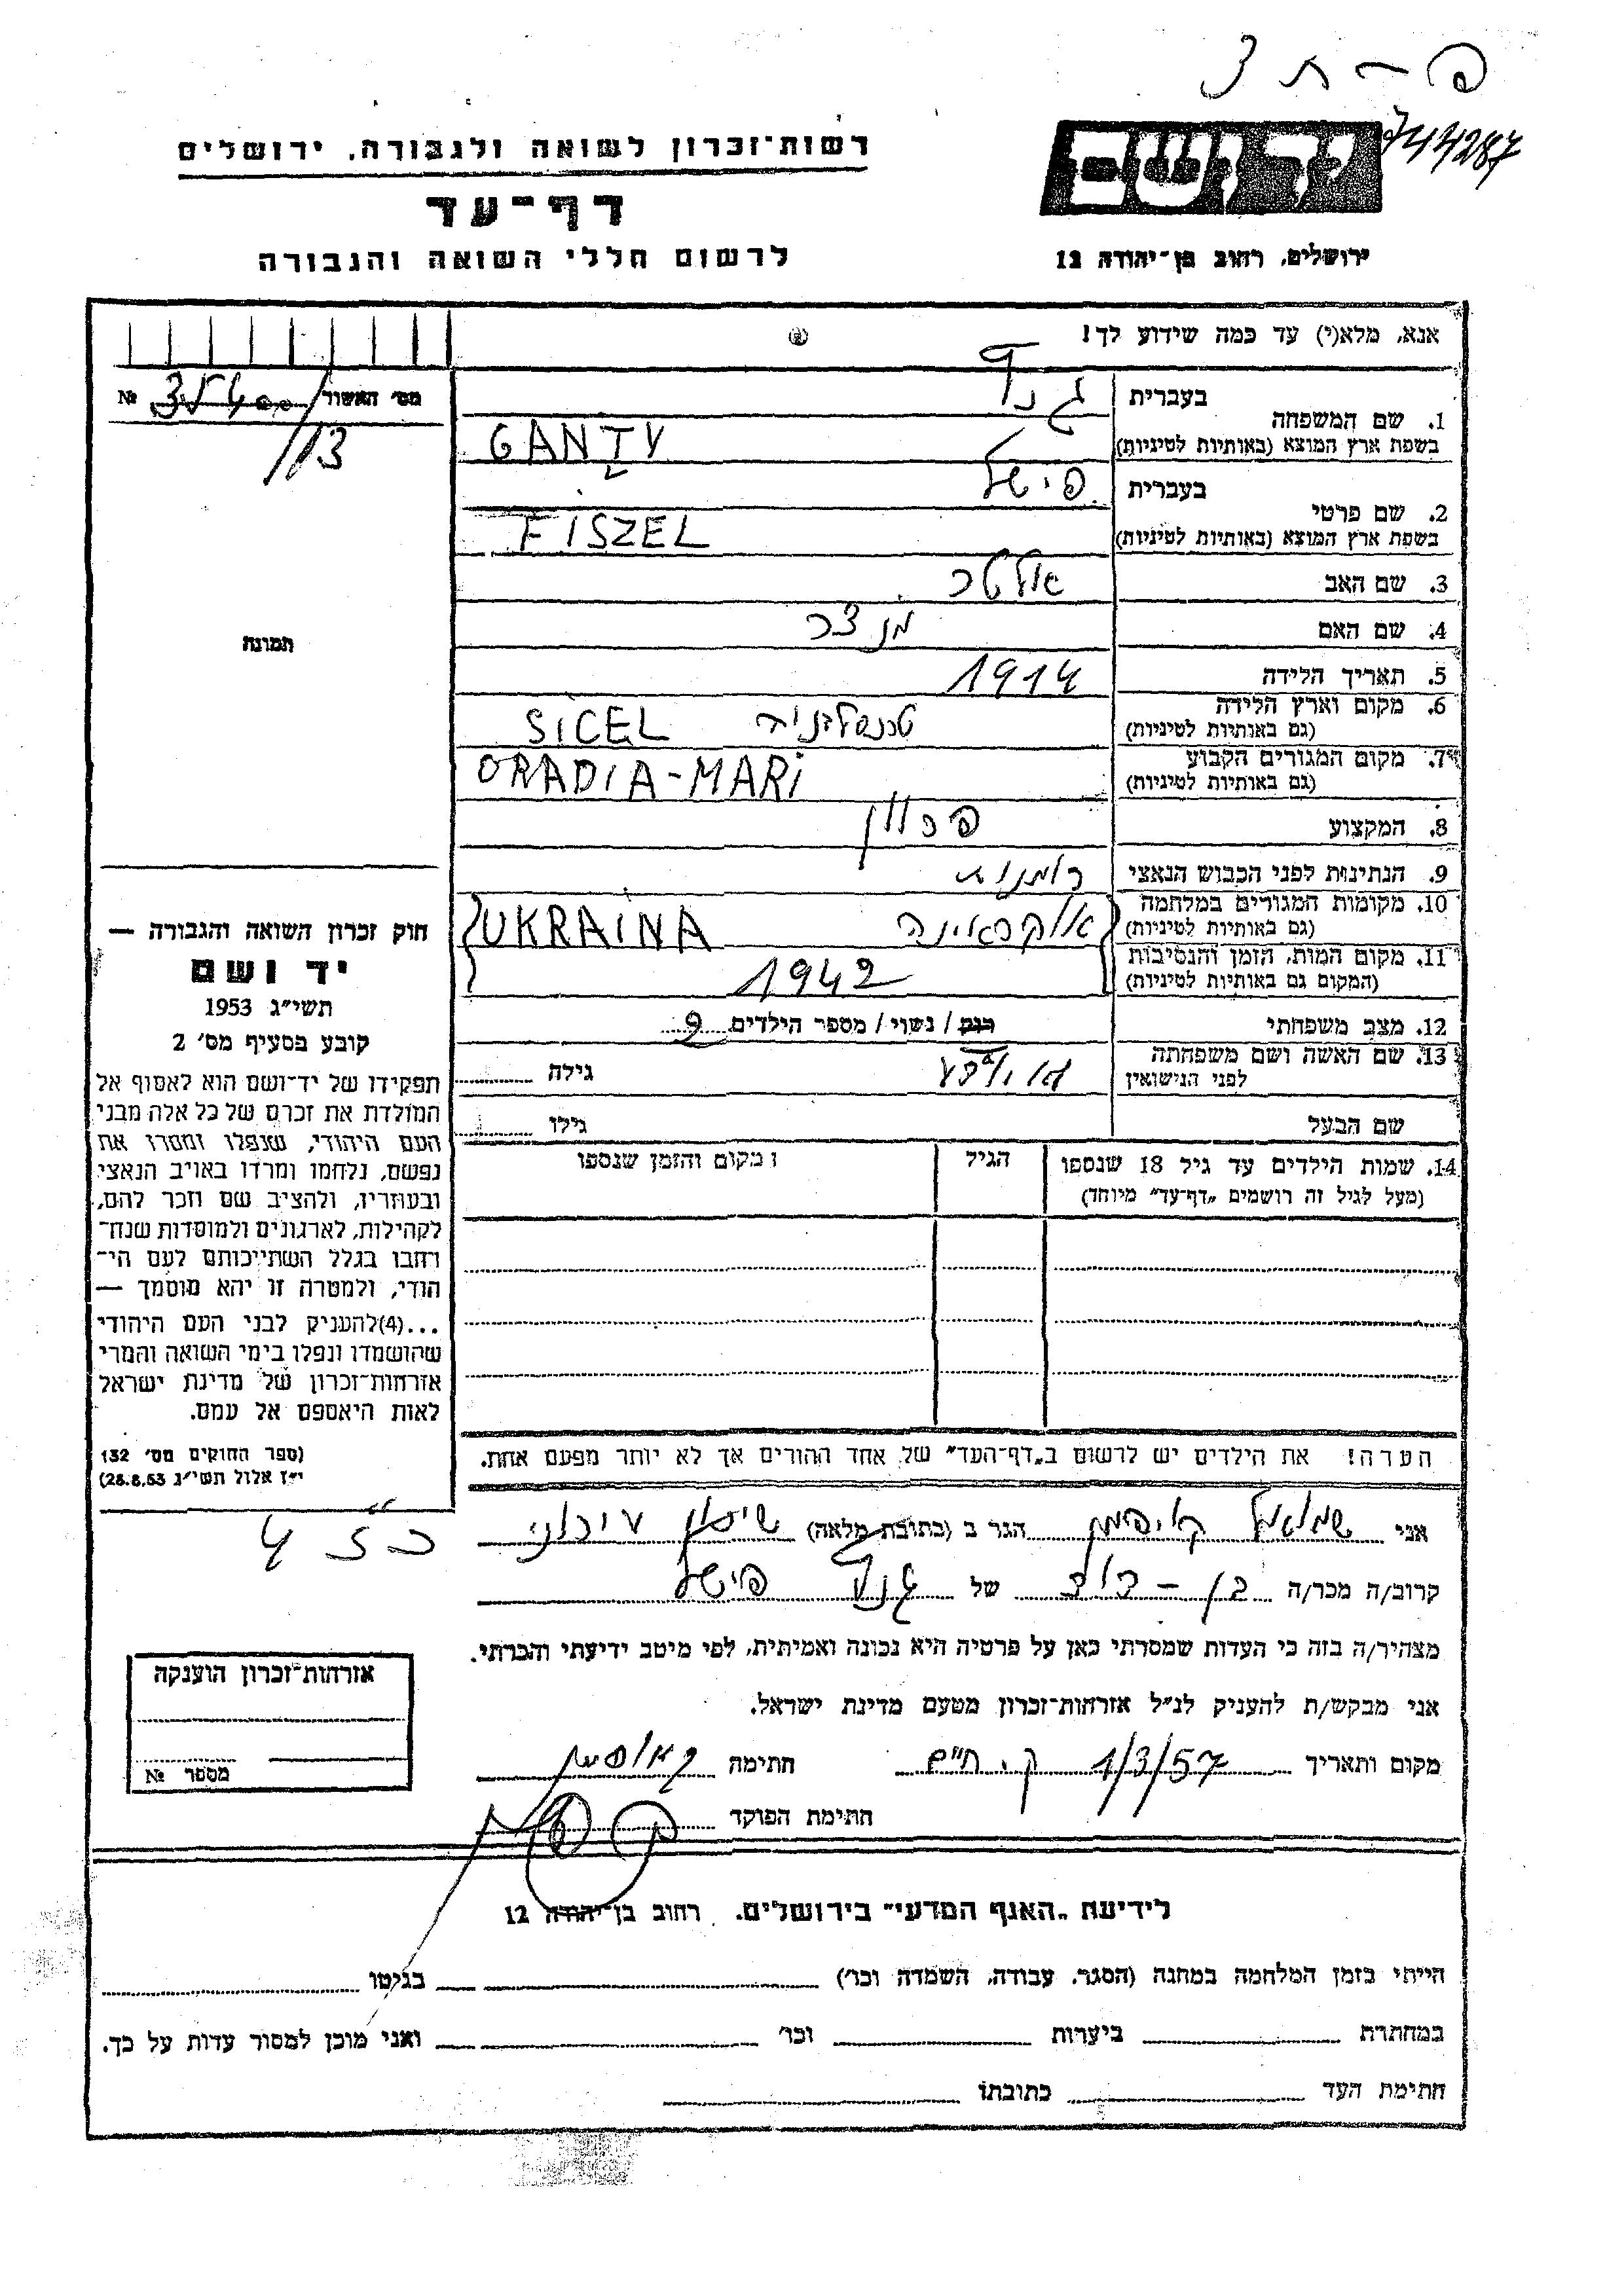 פ - ת 3
744287
ידושם
רשות־זכרון לשואה ולגבורה, ירושלים
דף־עד
לרשום חללי השואה והגבורה
ירושלים, רחוב בן־יהודה 12
אנא, מלא(י) עד כמה שידוע לך!
מס׳ האשור № 35400/
113
1. שם המשפחה
בעברית
בשפת ארץ המוצא (באותיות לטיניות) GANTZ
2. שם פרטי
בעברית פישל
בשפת ארץ המוצא (באותיות לטיניות) FISZEL
3. שם האב אלטר
4. שם האם
5. תאריך הלידה 1914
6. מקום וארץ הלידה
(גם באותיות לטיניות) טרנסילווניה SICEL
7. מקום המגורים הקבוע
(גם באותיות לטיניות) ORADIA-MARI
8. המקצוע פרוון
9. הנתינות לפני הכבוש הנאצי
10. מקומות המגורים במלחמה
(גם באותיות לטיניות) אוקראינה UKRAINA
11. מקום המות, הזמן והנסיבות
(המקום גם באותיות לטיניות) 1942
12. מצב משפחתי רוק / נשוי / מספר הילדים 2
13. שם האשה ושם משפחתה
לפני הנישואין גילה
שם הבעל גילו
14. שמות הילדים עד גיל 18 שנספו הגיל ומקום והזמן שנספו
(מעל לגיל זה רושמים „דף־עד” מיוחד)
תמונה
חוק זכרון השואה והגבורה —
יד ושם
תשי״ג 1953
קובע בסעיף מס׳ 2
תפקידו של יד־ושם הוא לאסוף אל
המולדת את זכרם של כל אלה מבני
העם היהודי, שנפלו ומסרו את
נפשם, נלחמו ומרדו באויב הנאצי
ובעוזריו, ולהציב שם וזכר להם,
לקהילות, לארגונים ולמוסדות שנח־
רחבו בגלל השתייכותם לעם הי־
הודי, ולמטרה זו יהא מוסמך —
...(4)להעניק לבני העם היהודי
שהושמדו ונפלו בימי השואה והמרי
אזרחות־זכרון של מדינת ישראל
לאות היאספם אל עמם.
(ספר החוקים מס׳ 132
י״ז אלול תשי״ג 28.8.53)
הערה! את הילדים יש לרשום ב„דף־העד” של אחד ההורים אך לא יותר מפעם אחת.
אני שמואל הגר ב (כתובת מלאה) שיכון עירוני
קרוב/ה מכר/ה בן-דוד של גנץ פישל
מצהיר/ה בזה כי העדות שמסרתי כאן על פרטיה היא נכונה ואמיתית, לפי מיטב ידיעתי והכרתי.
אני מבקש/ת להעניק לנ״ל אזרחות־זכרון מטעם מדינת ישראל.
מקום ותאריך 1/3/57 חתימה
חתימת הפוקד
אזרחות־זכרון הוענקה
מספר №
לידיעת „האגף המדעי” בירושלים, רחוב בן־יהודה 12
הייתי בזמן המלחמה במחנה (הסגר, עבודה, השמדה וכו׳) בגיטו
במחתרת ביערות וכו׳ ואני מוכן למסור עדות על כך.
חתימת העד כתובתו